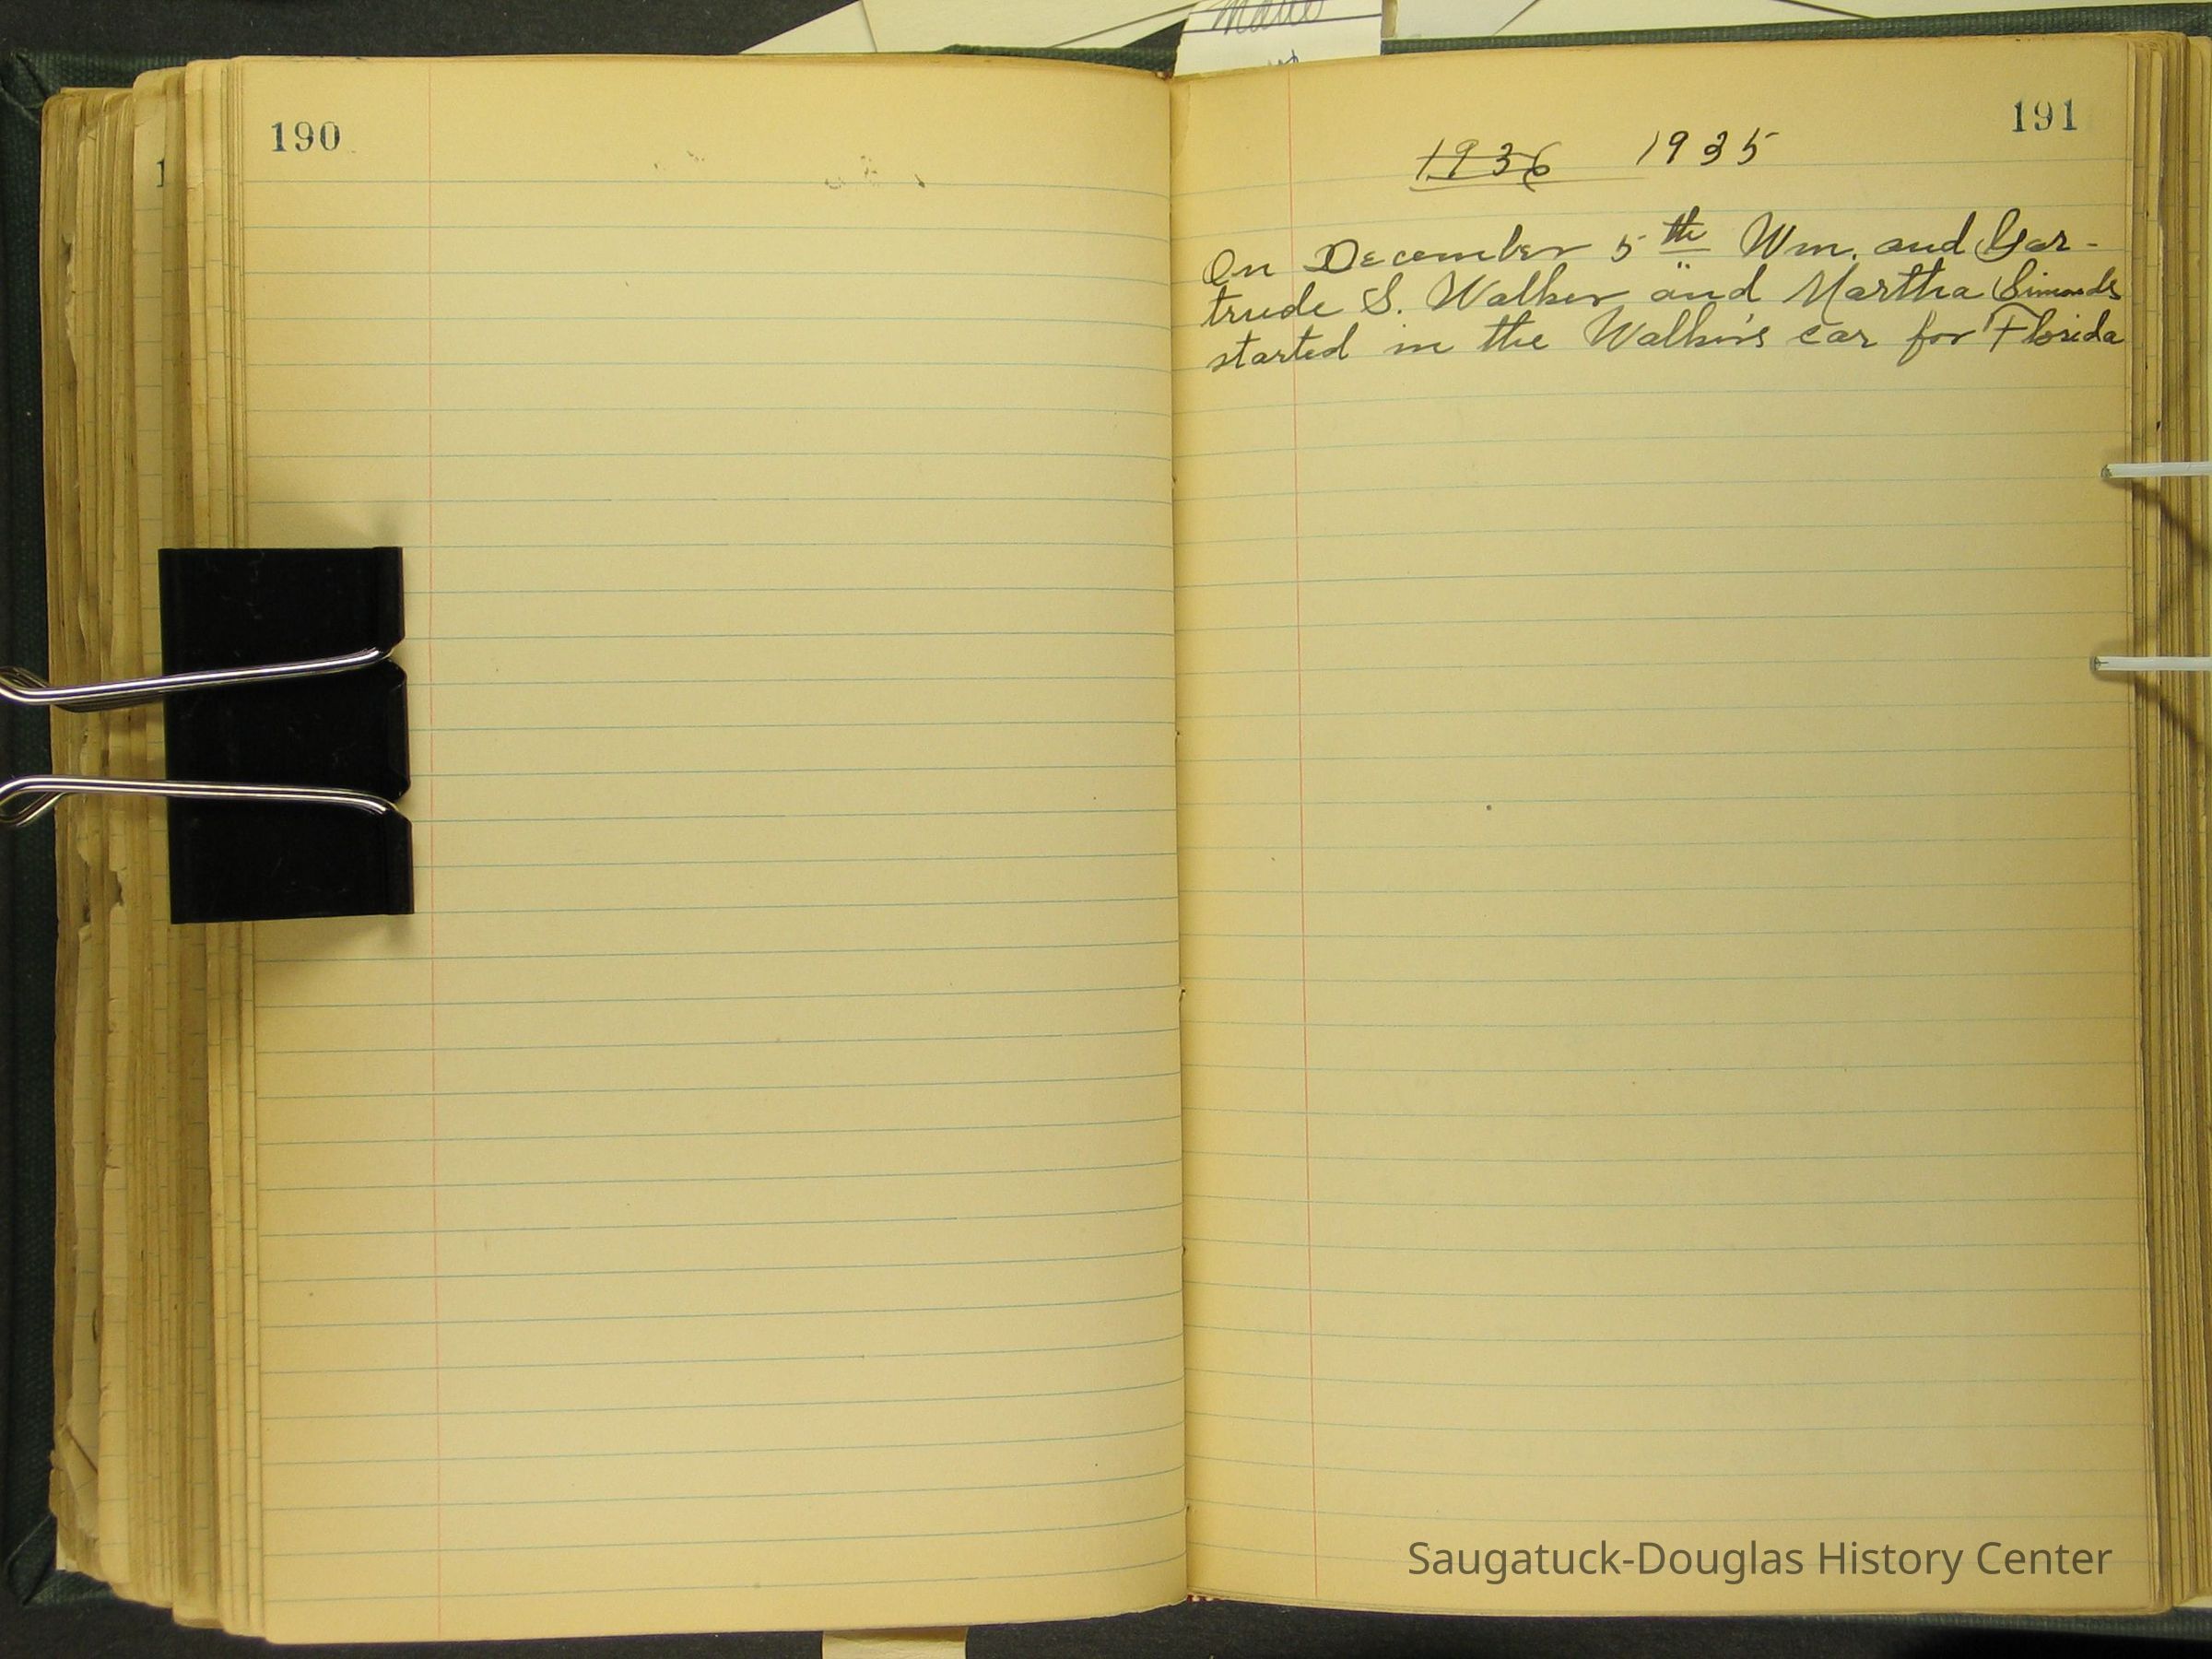 190
191
1936 1935
On December 5th Wm. and Ger-
trude S. Walker and Martha Simonds
started in the Walker's car for Florida
Saugatuck-Douglas History Center